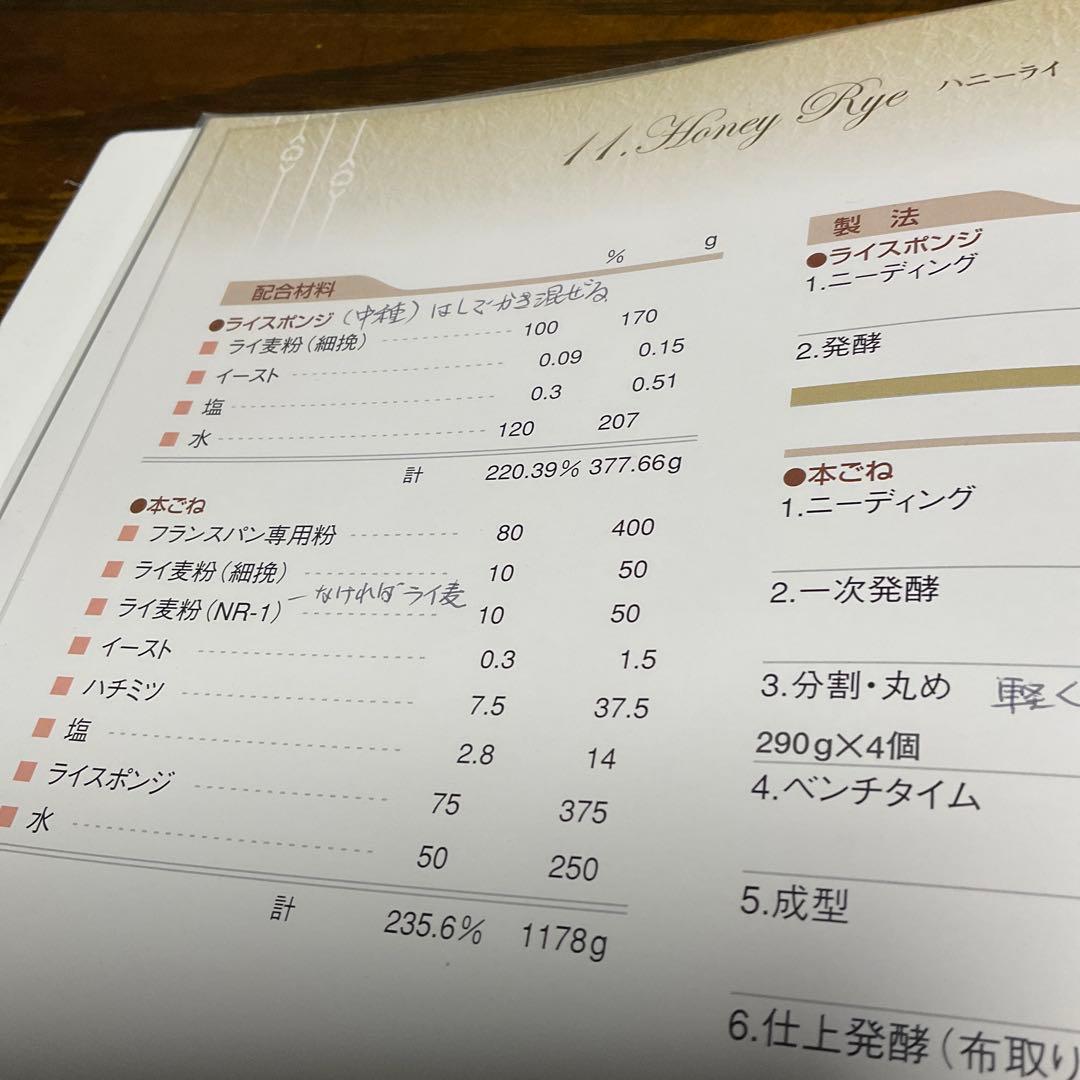 11. Honey Rye ハニーライ
配合材料 % g
●ライスポンジ（中種）はしでかき混ぜる
ライ麦粉（細挽） 100 170
イースト 0.09 0.15
塩 0.3 0.51
水 120 207
計 220.39% 377.66g
●本ごね
フランスパン専用粉 80 400
ライ麦粉（細挽） 10 50
ライ麦粉（NR-1） なければライ麦 10 50
イースト 0.3 1.5
ハチミツ 7.5 37.5
塩 2.8 14
ライスポンジ 75 375
水 50 250
計 235.6% 1178g
製 法
●ライスポンジ
1.ニーディング
2.発酵
●本ごね
1.ニーディング
2.一次発酵
3.分割・丸め 軽く
290g×4個
4.ベンチタイム
5.成型
6.仕上発酵（布取り